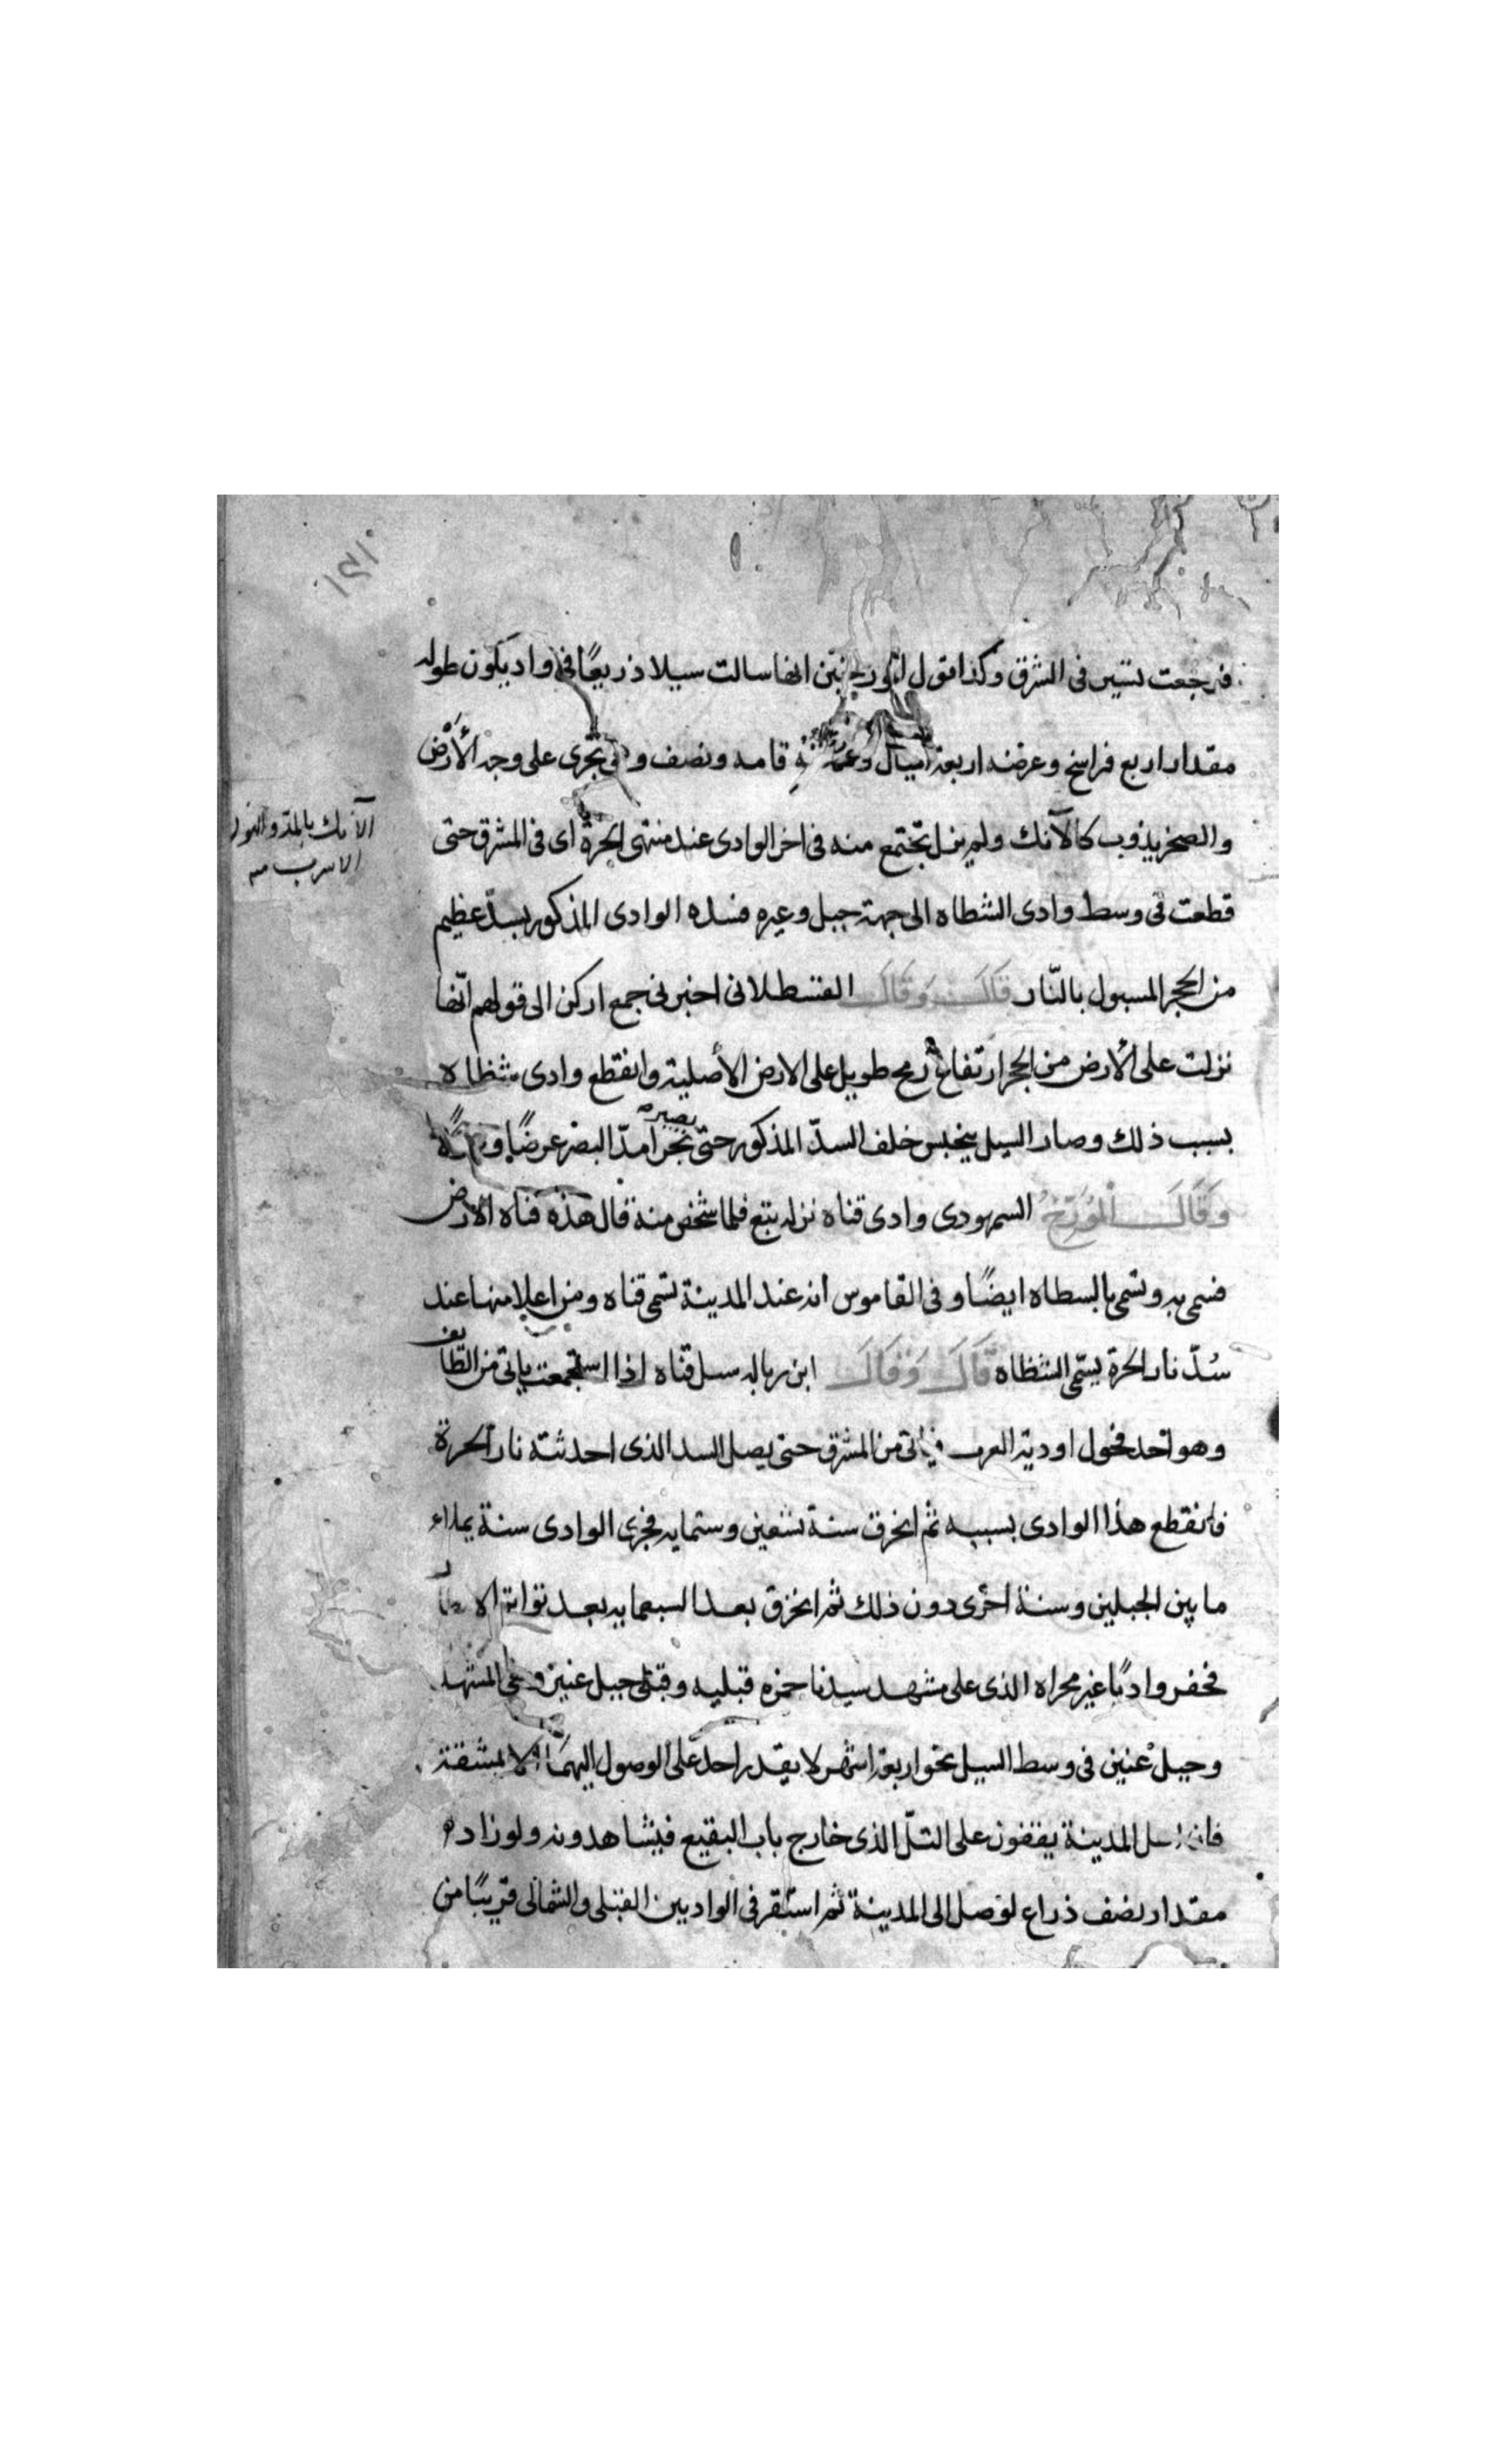 ١٥١
فرجعت تسير فى الشرق وكذا قول المورخين انها سالت سيلا ذريعًا فى واد يكون طوله
مقدار اربع فراسخ وعرضه اربعة اميال وعمقه قامه ونصف وهى تجرى على وجه الأرض
والصخر يذوب كالآنك ولم يزل يجتمع منه فى اخر الوادى عند منتهى الحرة اى فى المشرق حتى
الآنك بالمد والنون
الاسرب منه
قطعت فى وسط وادى الشطاه الى جهة جبل وعيره فسده الوادى المذكور بسدّ عظيم
من الحجر المسبول بالنّار قَالَ وَقَالَ القسطلانى اخبرنى جمع اركن الى قولهم انّها
نزلت على الأرض من الحجر ارتفاع رمح طويل على الارض الأصلية وانقطع وادى شظاه
بسبب ذلك وصار السيل ينحبس خلف السدّ المذكور حتى يصير بحرا مدّ البصر عرضًا و
وَقَالَ المُوَرّخُ السمهودى وادى قناه نزله تبع فلما شخص منه قال هذه قناه الأرض
فسمى به وتسمى بالسطاه ايضًا وفى القاموس انه عند المدينة تسمى قناه ومن اعلا منها عند
سُدّ نار الحرة يسمّى الشظاه قَالَ وَقَالَ ابن زباله سيل قناه اذا استجمعت ياتى من الطّايف
وهو احد فحول اودية العرب فياتى من المشرق حتى يصل السد الذى احدثته نار الحرة
فانقطع هذا الوادى بسببه ثم انخرق سنة تسعين وستمايه فجرى الوادى سنة يملاء
ما بين الجبلين وسنة اخرى دون ذلك ثم انخرق بعد السبعمايه بعد تواتر الامطار
فحفر واديًا غير مجراه الذى على مشهد سيدنا حمزه قبليه وقبلى جبل عنين وبقى المشهد
وجبل عنين فى وسط السيل نحو اربعة اشهر لا يقدر احد على الوصول اليهما الا بمشقة
فان اهل المدينة يقفون على التلّ الذى خارج باب البقيع فيشاهدونه ولو زاد
مقدار نصف ذراع لوصل الى المدينة ثم استقر فى الواديين القبلى والشمالى قريبًا من